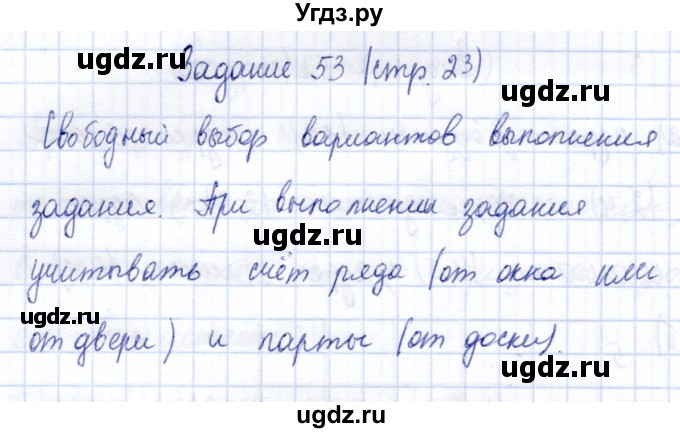 Угдз.ру
Задание 53 (стр. 23)
Свободный выбор вариантов выполнения
задания. При выполнении задания
учитывать счёт ряда (от окна или
от двери) и парты (от доски).
ugdz.ru
ugdz.ru
ugdz.ru
ugdz.ru
ugdz.ru
ugdz.ru
ugdz.ru